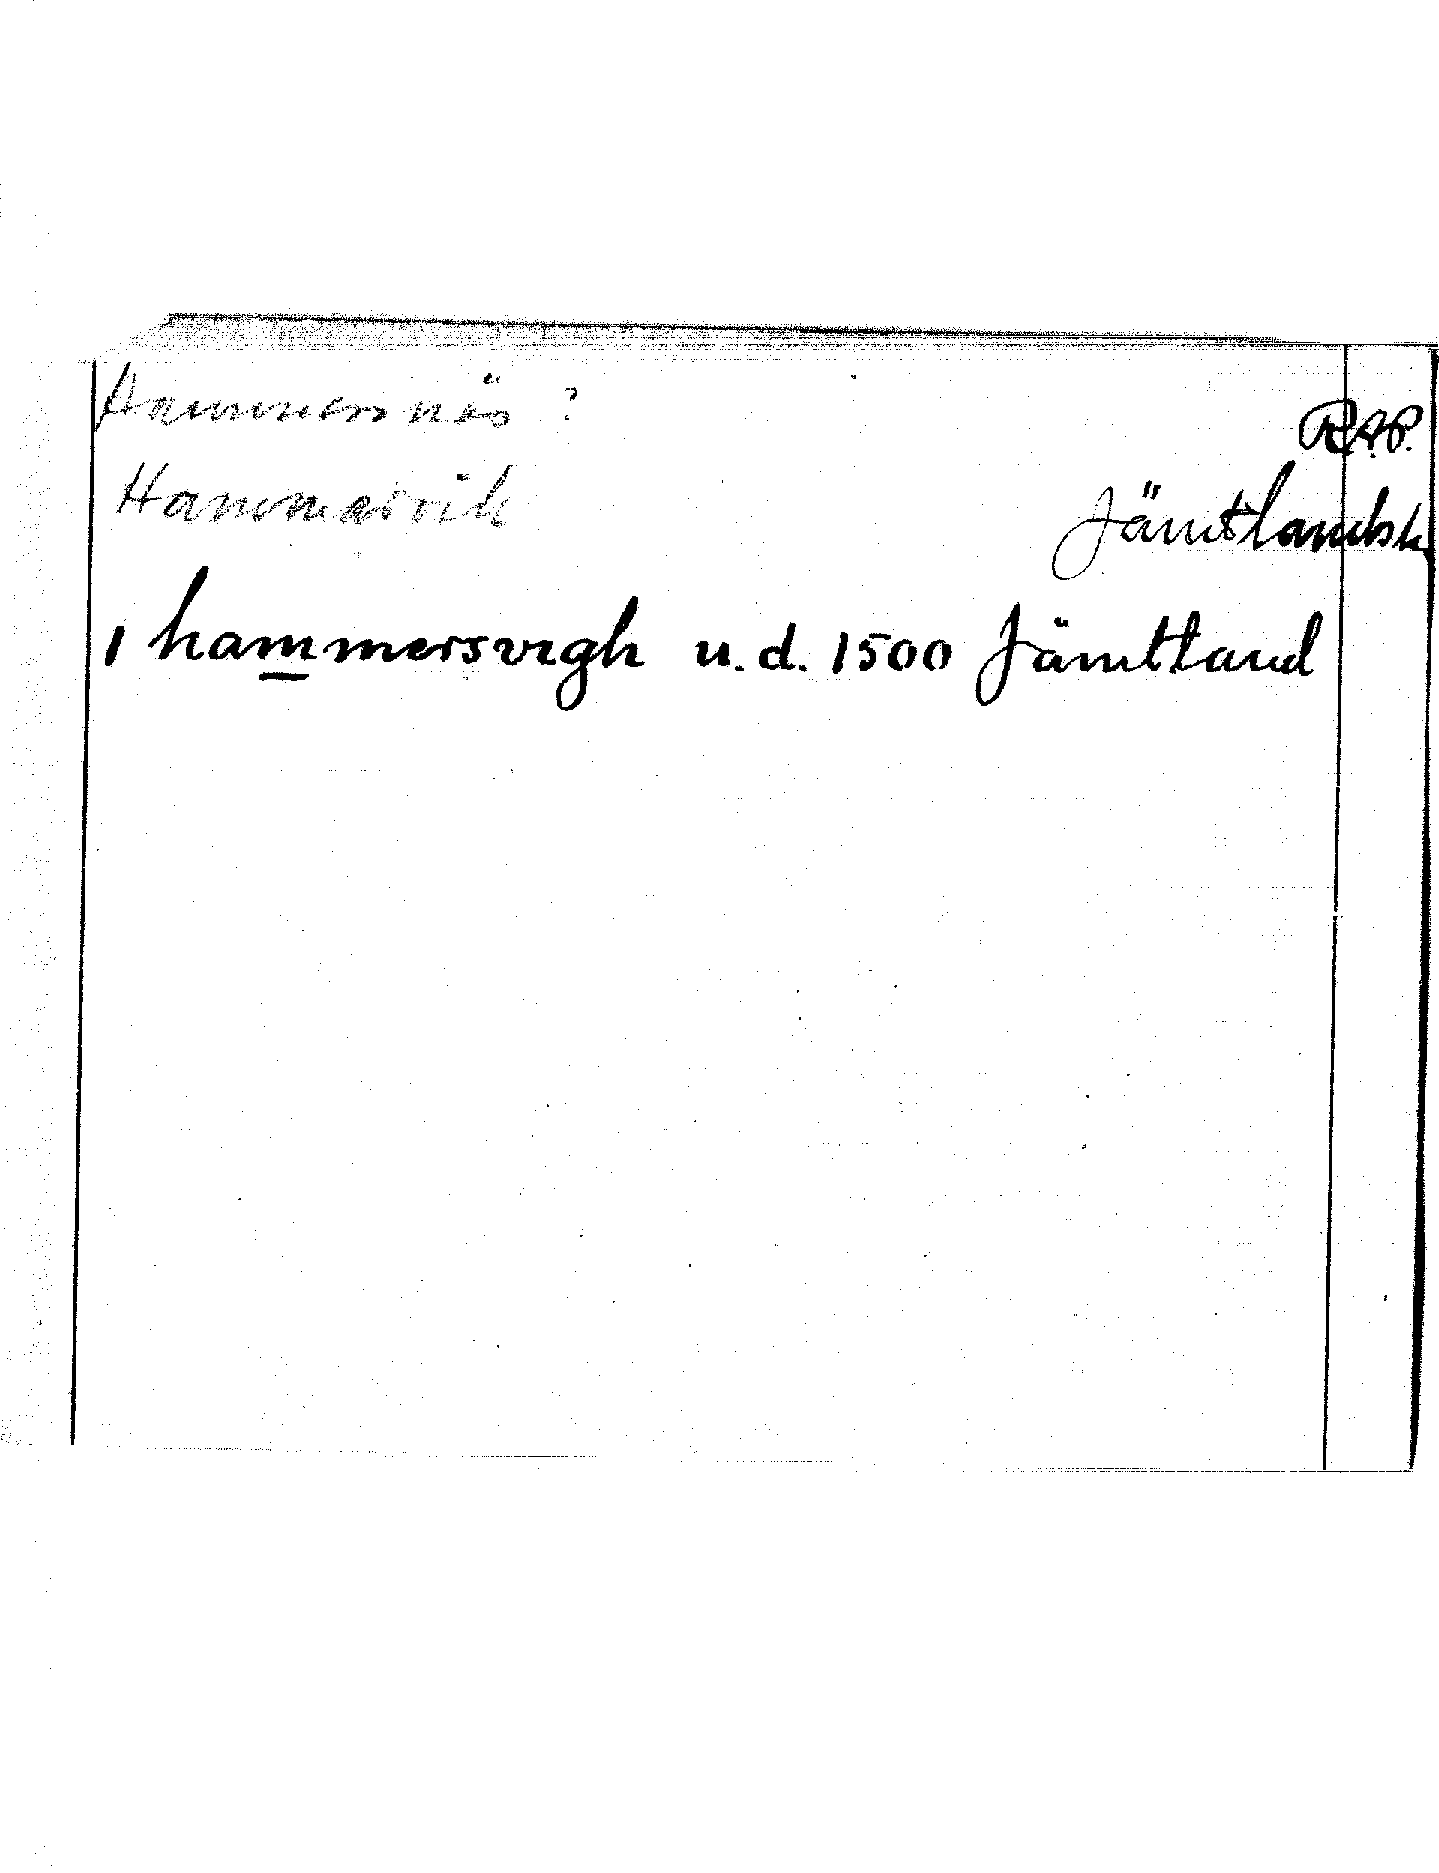 Hammersnäs ?
R.A.P.
Hammarvik
Jämtlandsk
1 hammersvigh u.d. 1500 Jämtland